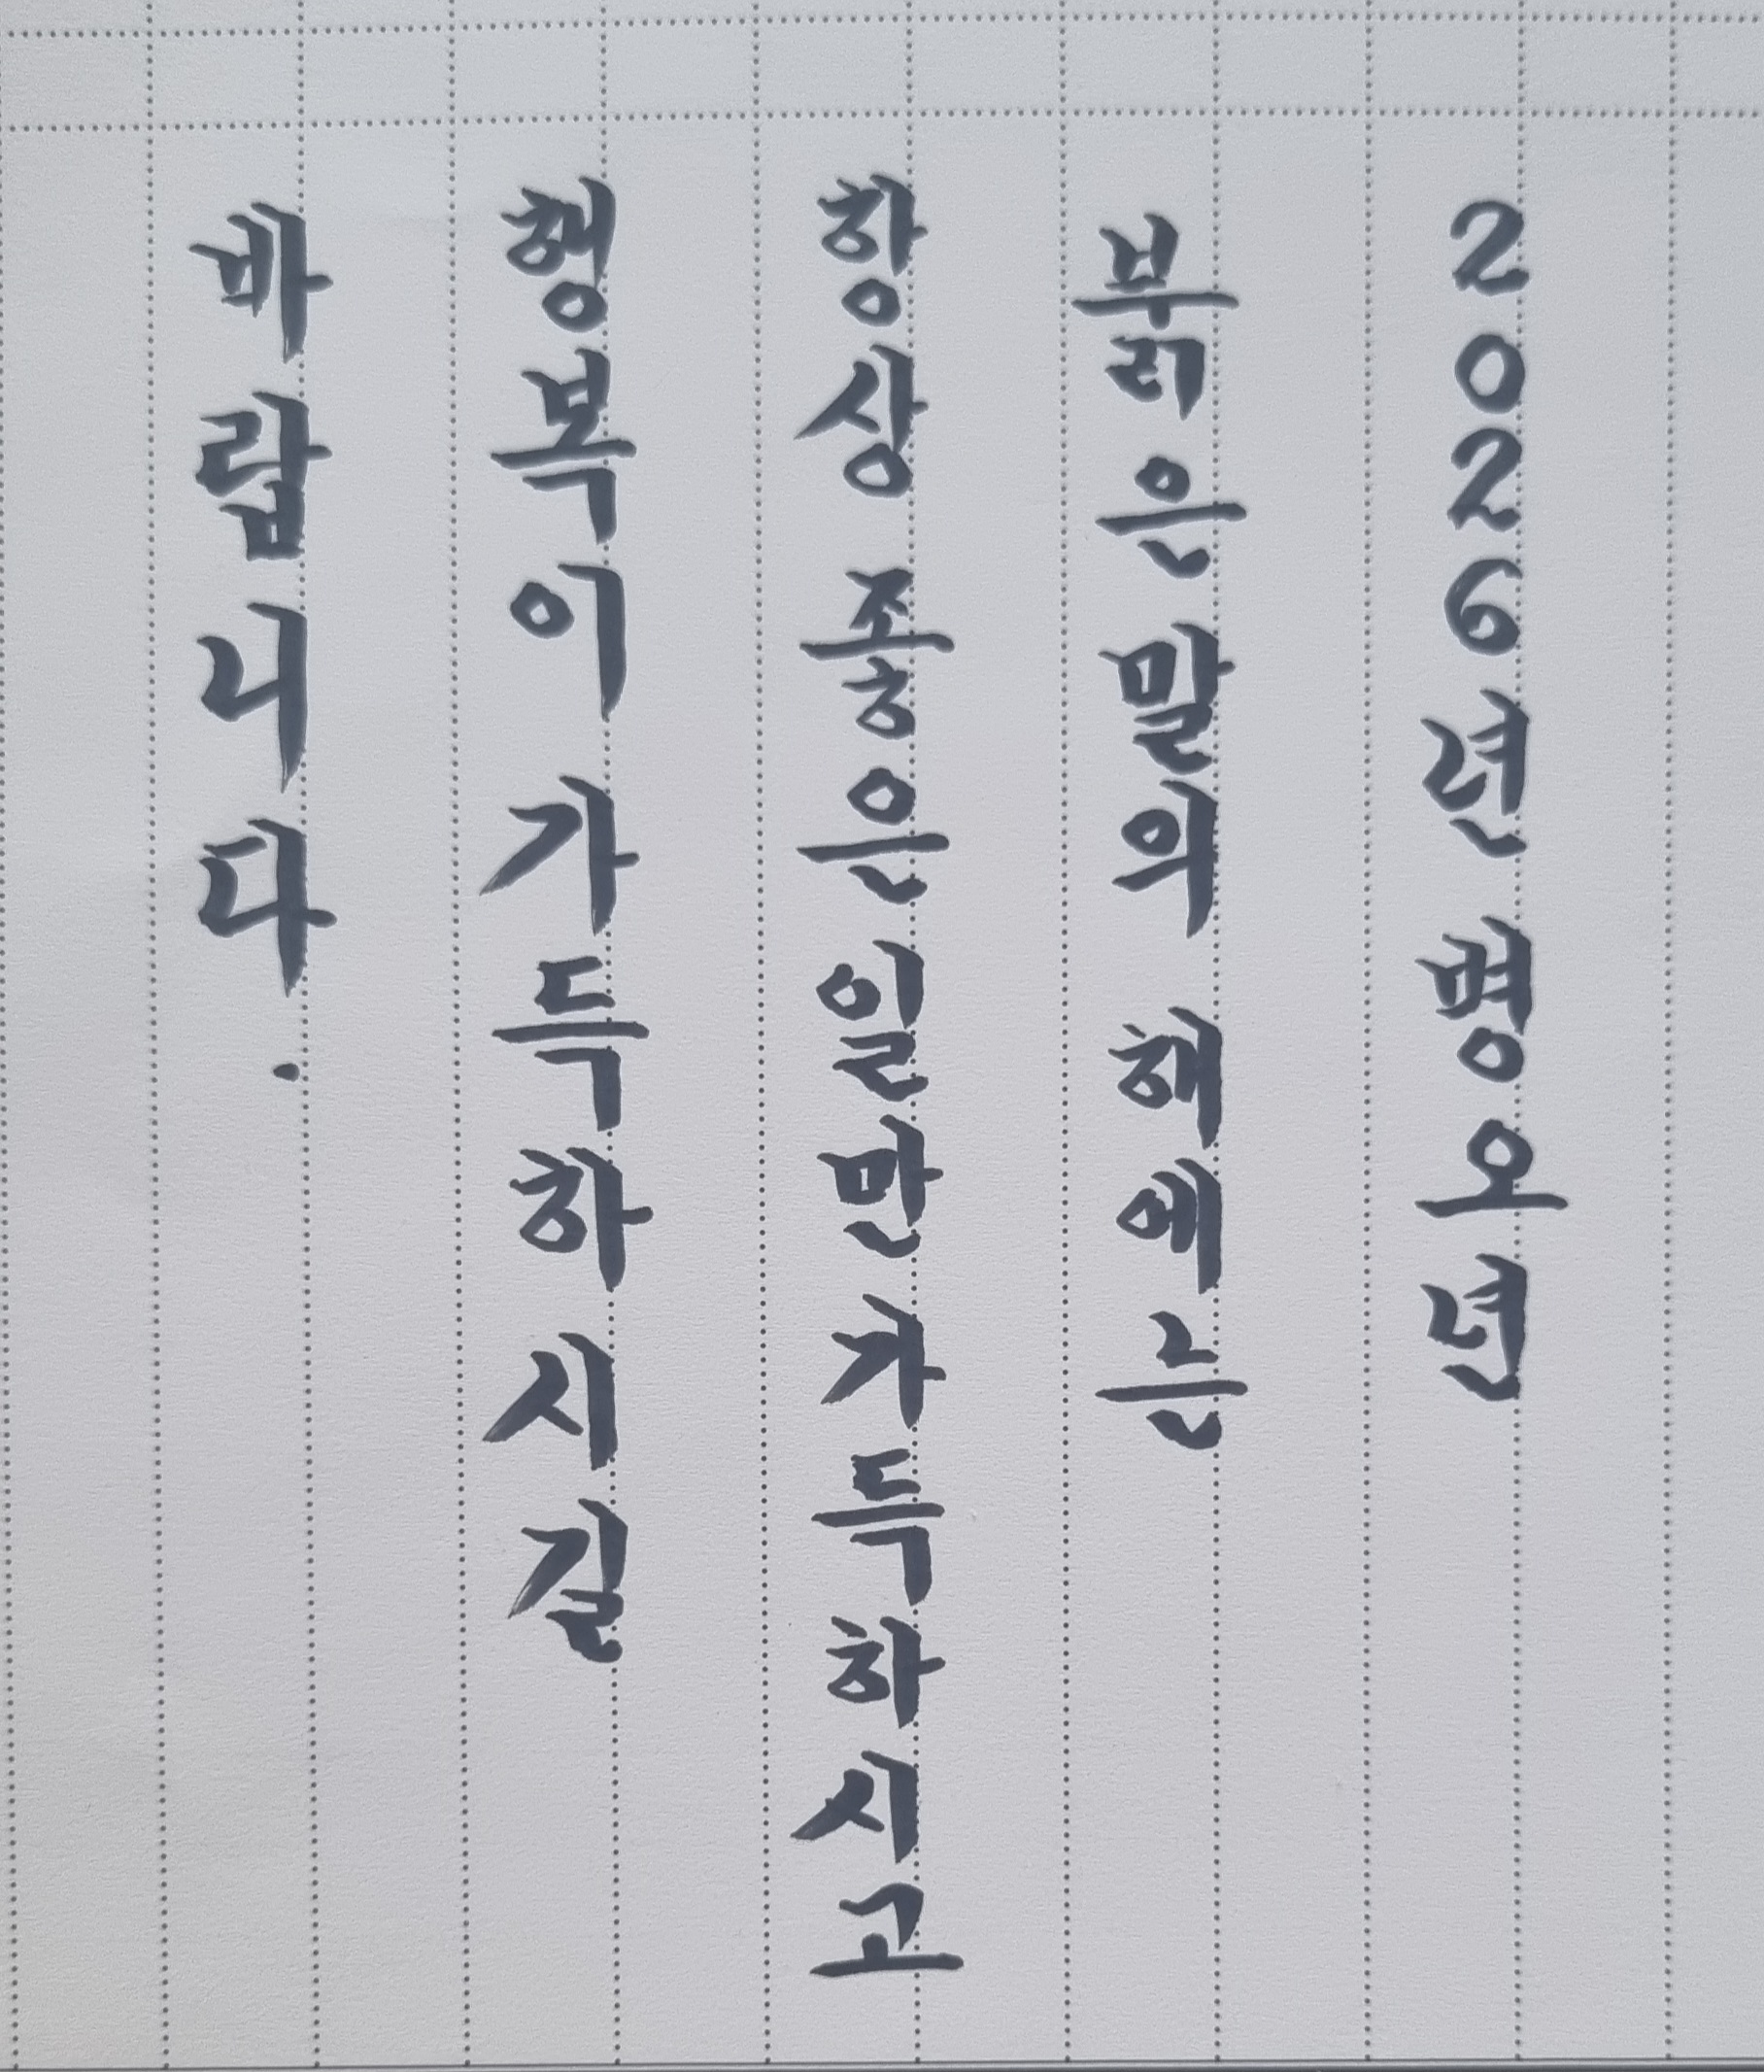 2026년 병오년
붉은 말의 해에는
항상 좋은 일만 가득하시고
행복이 가득하시길
바랍니다.